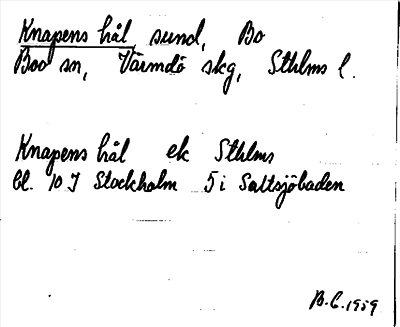 Knapens hål, sund, Bo
Boo sn, Värmdö skg, Sthlms l.
Knapens hål ek Sthlms
bl. 10 I Stockholm 5 i Saltsjöbaden
B.C. 1959